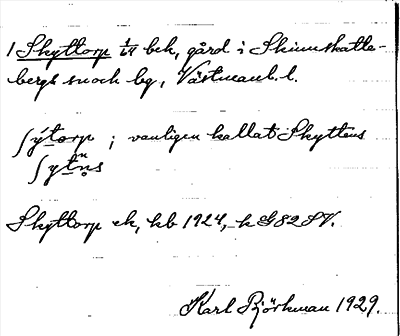 1 Skyttorp 1/64 bek, gård i Skinnskatte-
bergs snoch bg, Västmanl. l.
ʃýtorp ; vanligen kallat Skyttens
ʃytn̥s
Skyttorp ek, kb 1924, k G82SV.
Karl Björkman 1929.